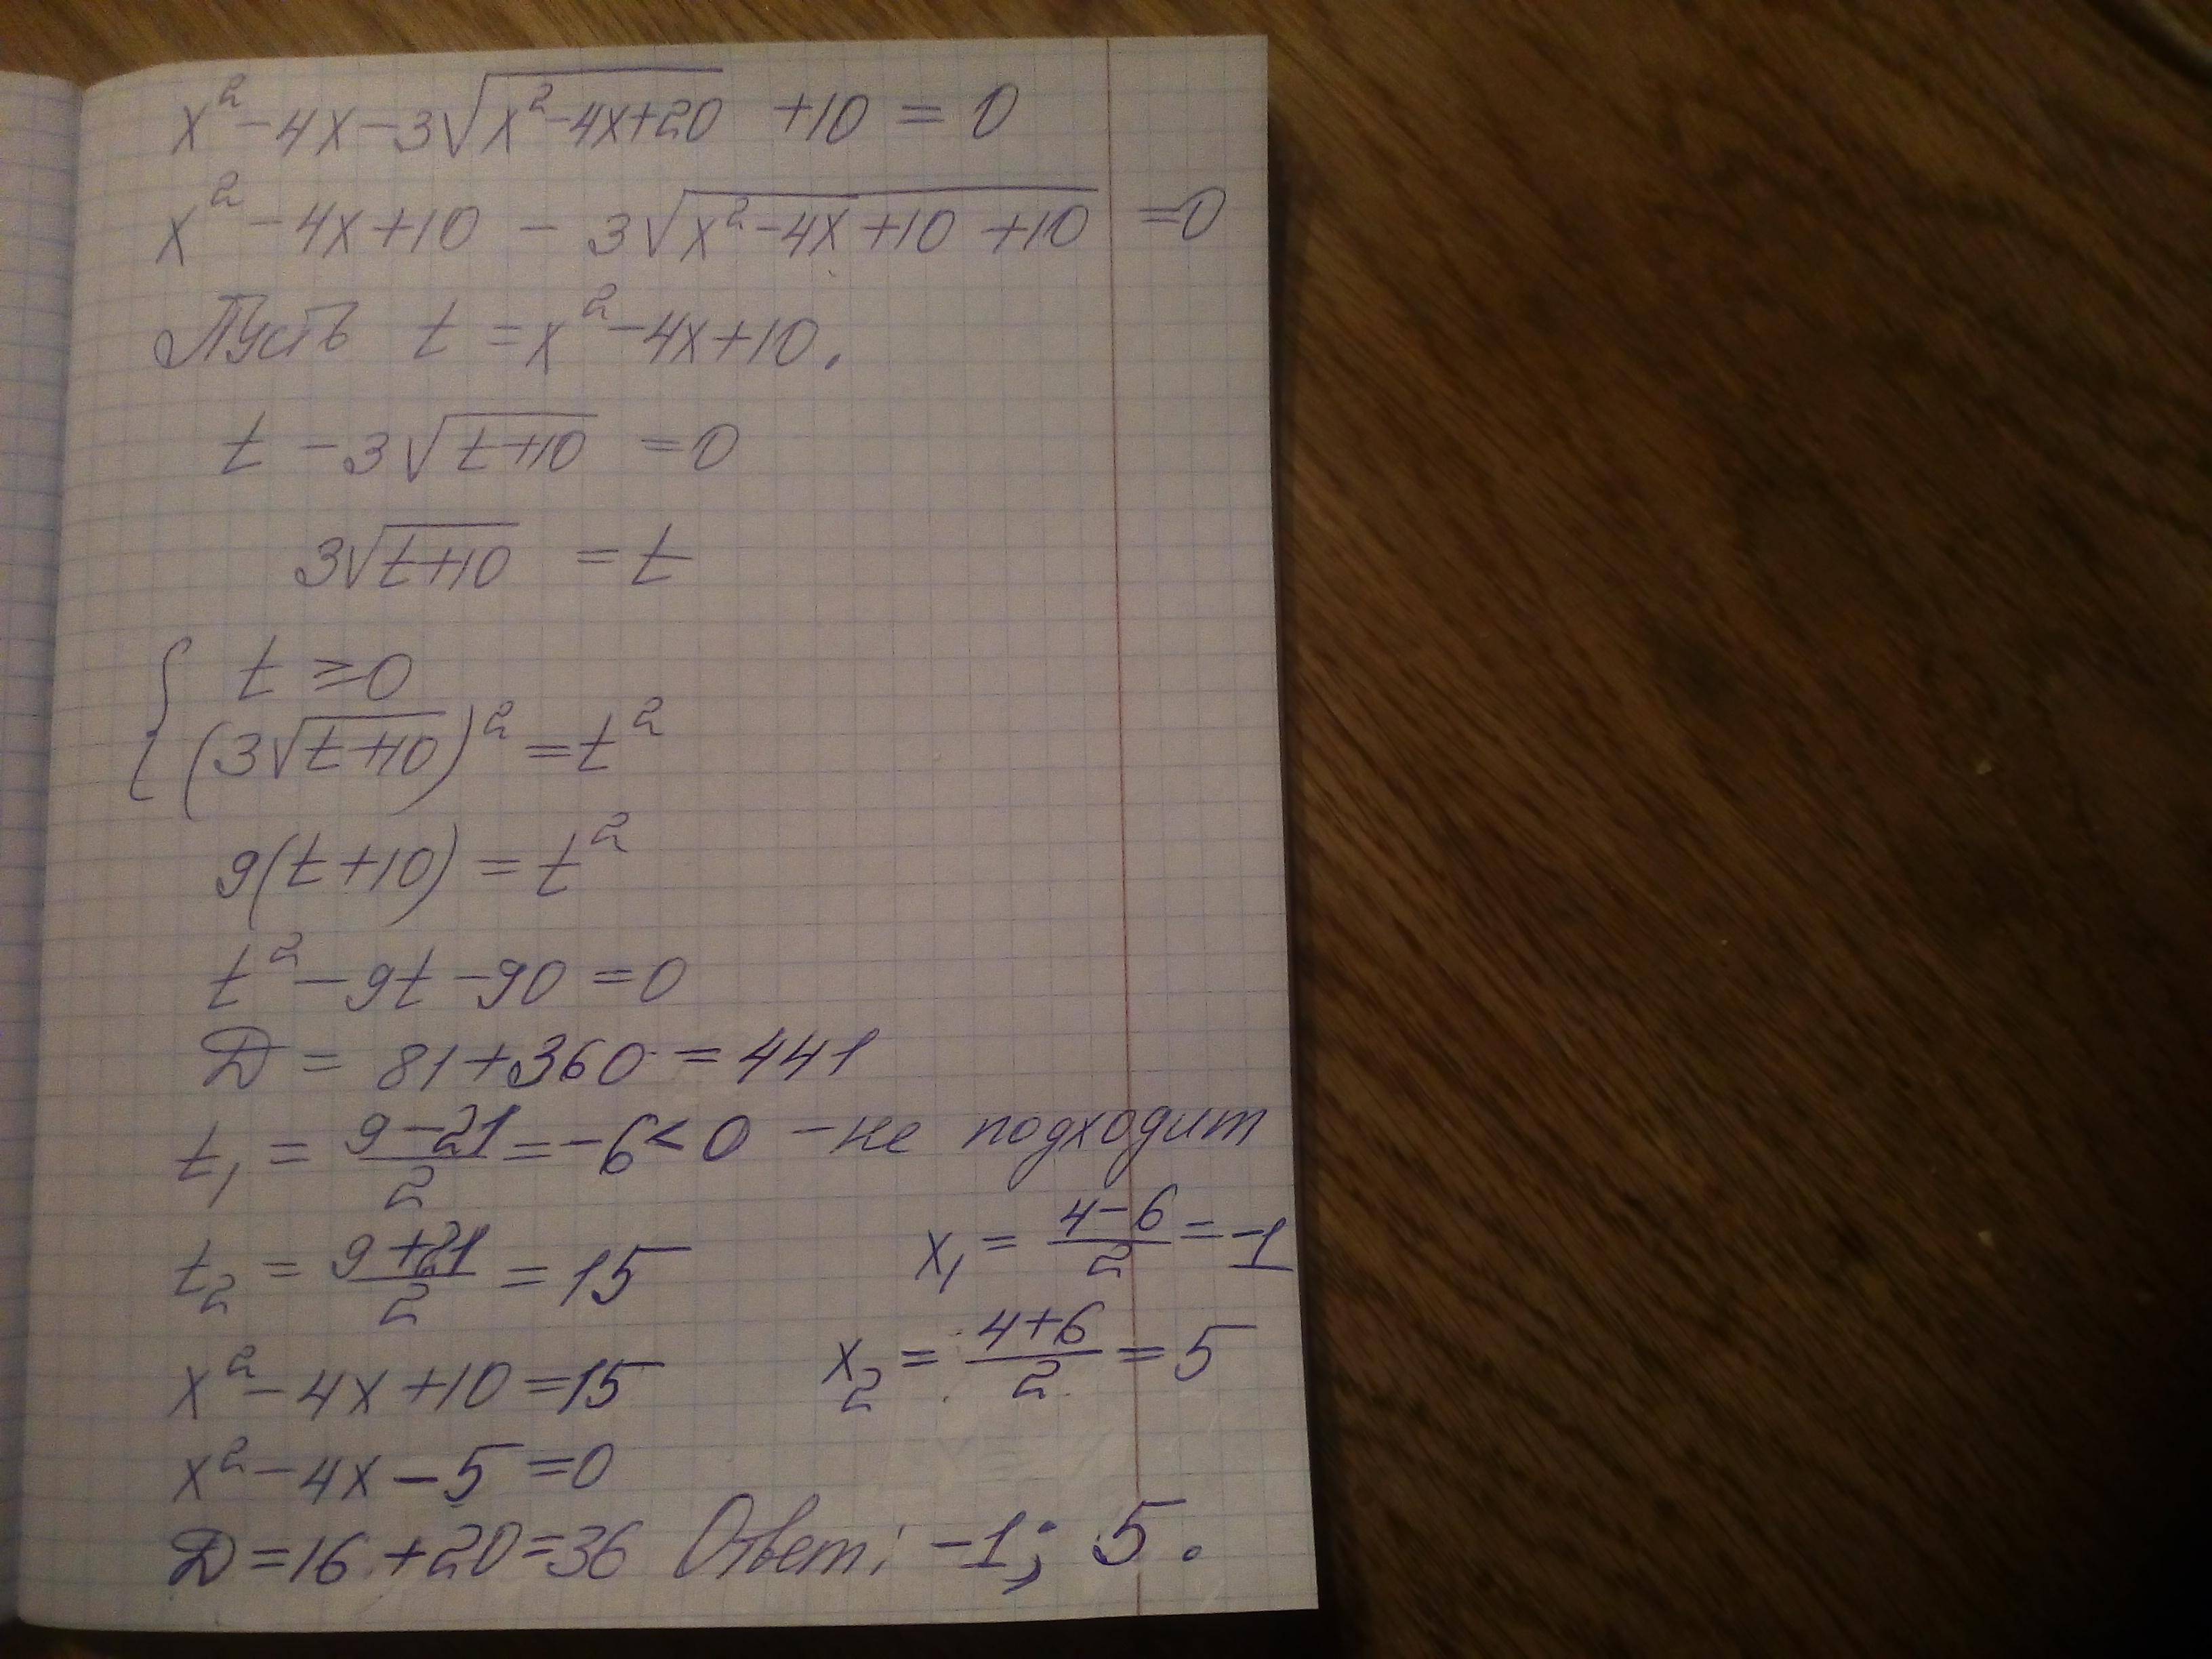 x² - 4x - 3√(x² - 4x + 20) + 10 = 0
x² - 4x + 10 - 3√(x² - 4x + 10 + 10) = 0
Пусть t = x² - 4x + 10.
t - 3√(t + 10) = 0
3√(t + 10) = t
{ t ≥ 0
(3√(t + 10))² = t²
9(t + 10) = t²
t² - 9t - 90 = 0
D = 81 + 360 = 441
t₁ = (9 - 21)/2 = -6 < 0 - не подходит
t₂ = (9 + 21)/2 = 15
x² - 4x + 10 = 15
x² - 4x - 5 = 0
D = 16 + 20 = 36
x₁ = (4 - 6)/2 = -1
x₂ = (4 + 6)/2 = 5
Ответ: -1; 5.